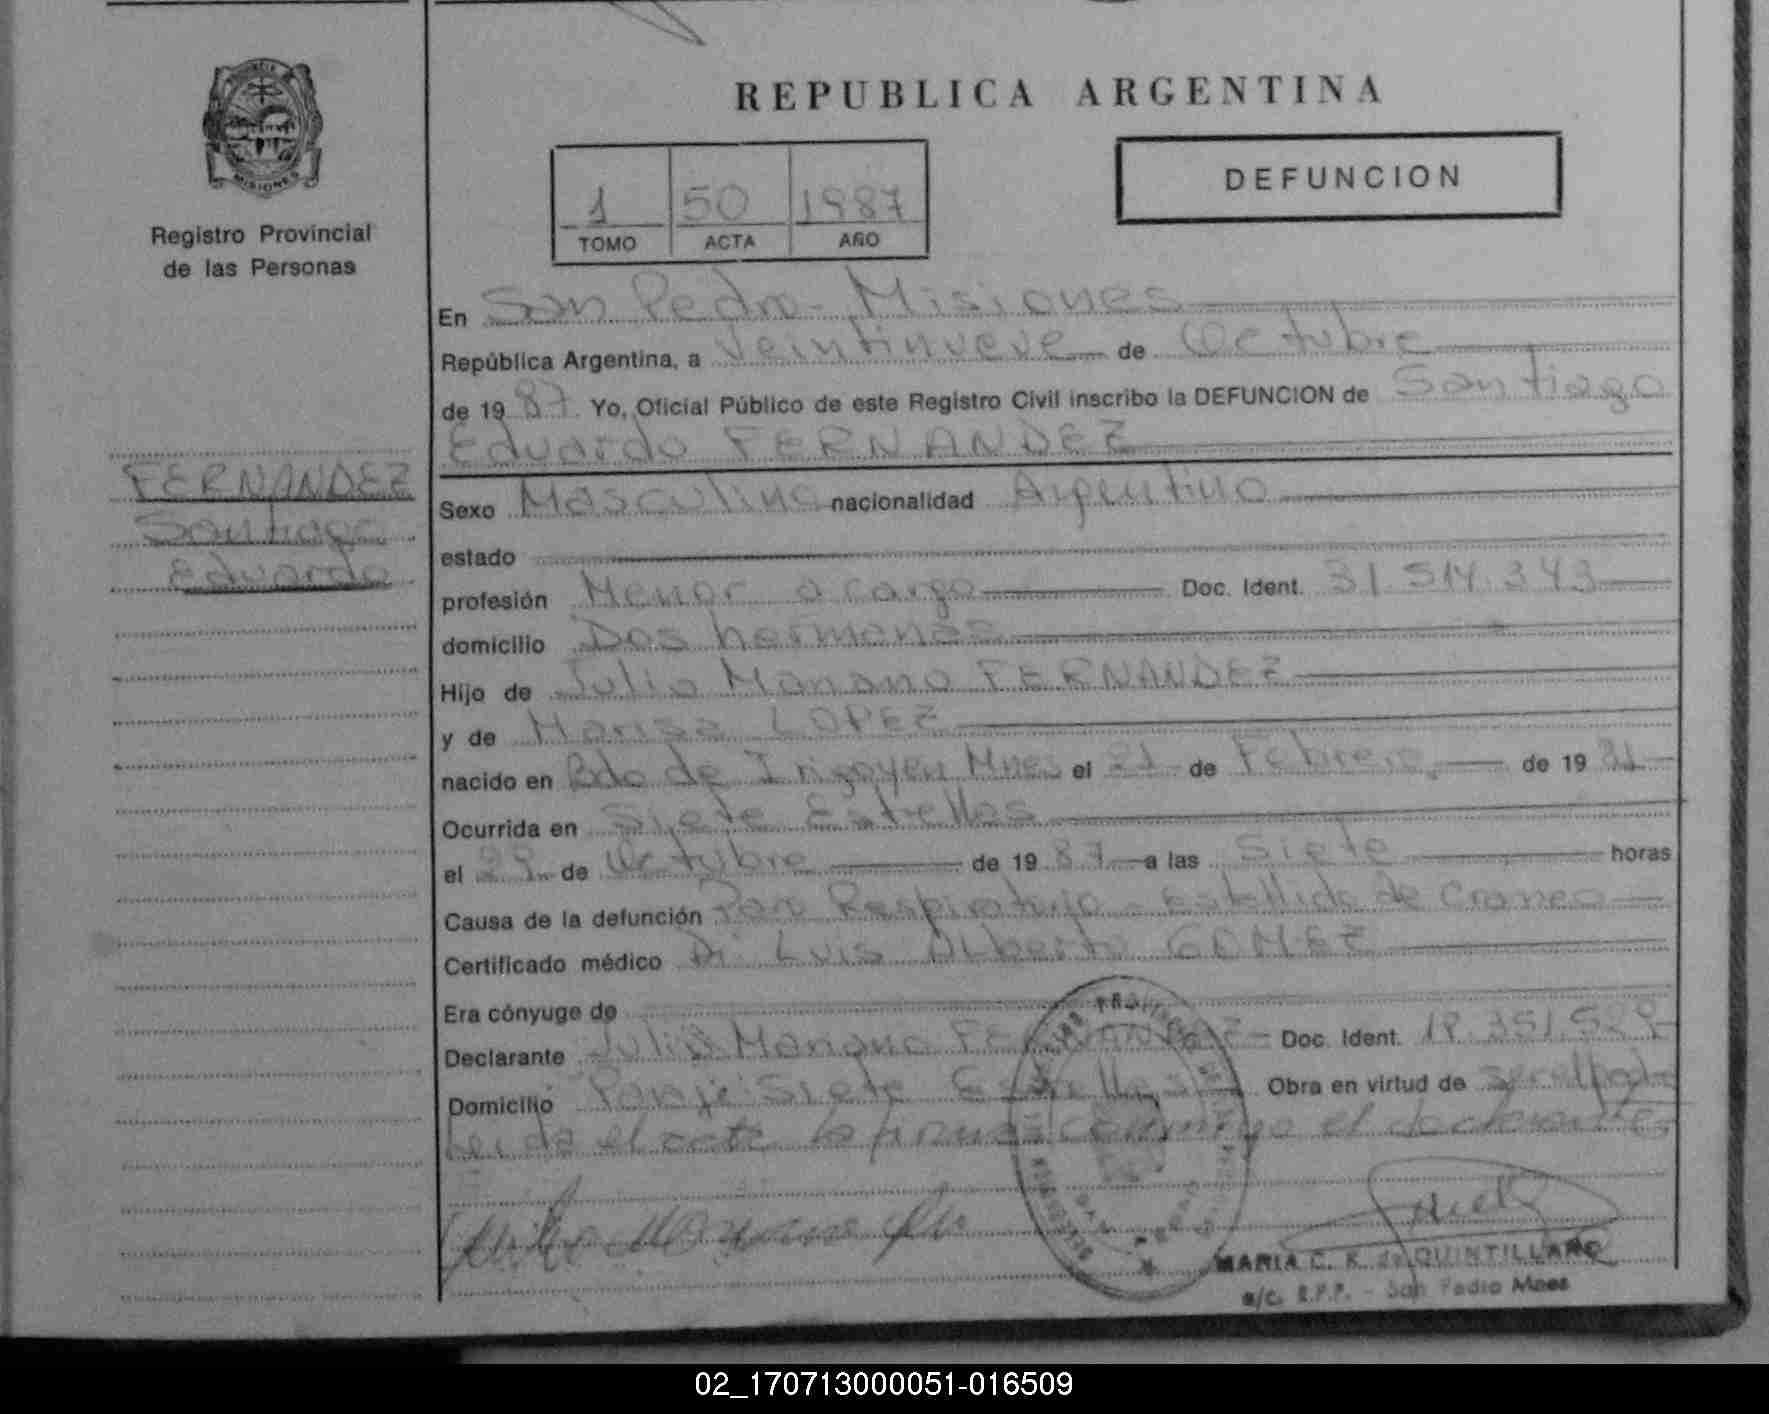 REPUBLICA ARGENTINA
DEFUNCION
1 50 1987
TOMO ACTA AÑO
PROVINCIA DE
MISIONES
Registro Provincial
de las Personas
FERNANDEZ
Santiago
Eduardo
En San Pedro - Misiones
República Argentina, a veintinueve de Octubre
de 19 87 Yo, Oficial Público de este Registro Civil inscribo la DEFUNCION de Santiago
Eduardo FERNANDEZ
Sexo Masculino nacionalidad Argentino
estado
profesión Menor a cargo Doc. Ident. 31.514.343
domicilio Dos hermanas
Hijo de Julio Mariano FERNANDEZ
y de Marisa LOPEZ
nacido en Bdo de Irigoyen Mnes el 21 de Febrero de 19 81
Ocurrida en Siete Estrellas
el 29 de Octubre de 19 87 a las Siete horas
Causa de la defunción Paro Respiratorio - Estallido de Craneo
Certificado médico Dr Luis Alberto GOMEZ
Era cónyuge de
Declarante Julio Mariano FERNANDEZ Doc. Ident.
Domicilio Paraje Siete Estrellas Obra en virtud de
Leida el acta la firma conmigo el declarante
MARIA C. K. de QUINTILLANO
a/c. R.P.P. - San Pedro Mnes
02_170713000051-016509